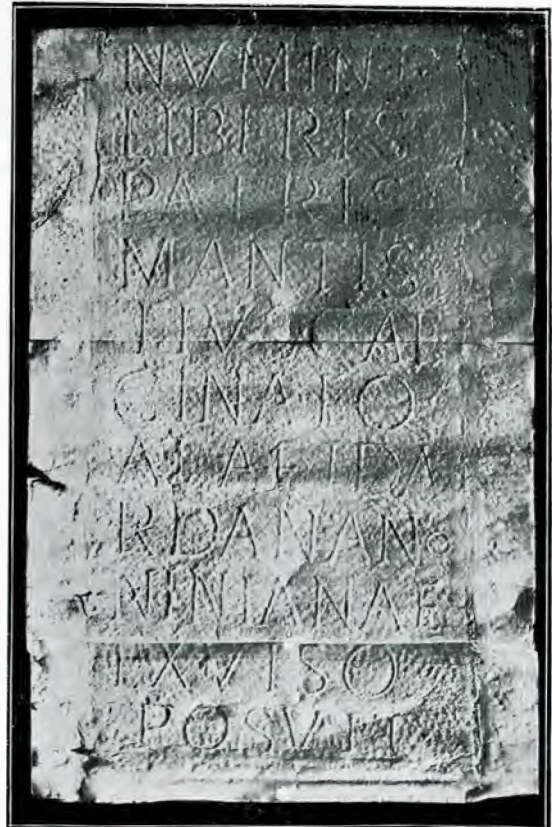 NVMINI
LIBERIS
PATRIS
MANTIS
ALAE I DA
RDANAN
NINIANAE
EXVISO
POSVIT